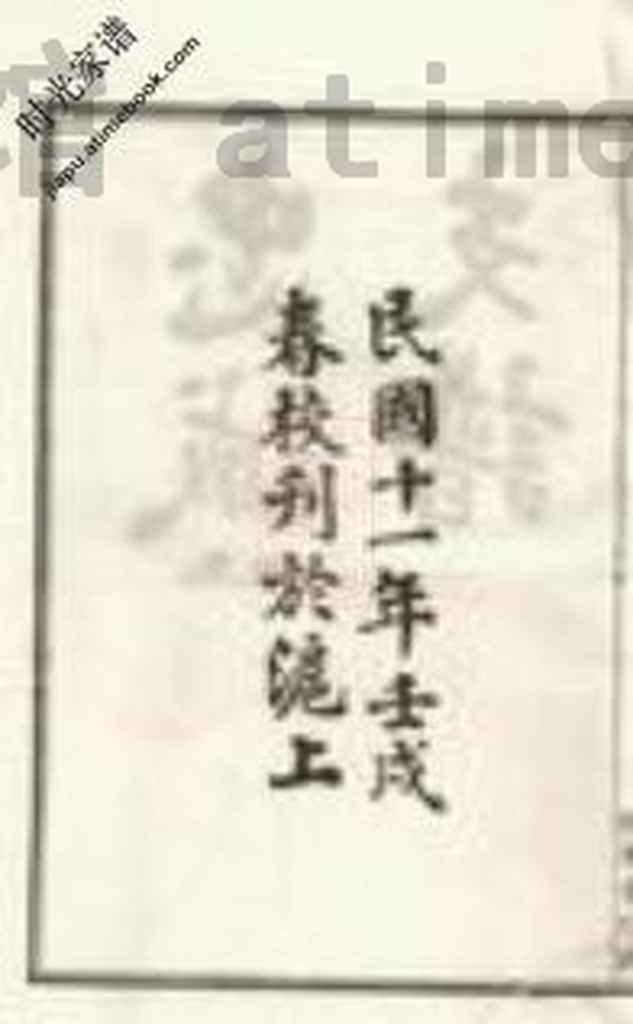 民國十一年壬戌
春校刊於滬上
时光家谱
jiapu.atimebook.com
atime